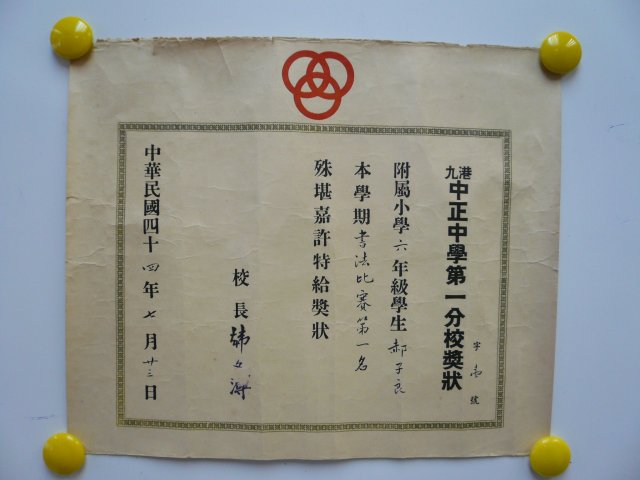 港九中正中學第一分校獎狀
字 號
附屬小學六年級學生郝子良
本學期書法比賽第一名
殊堪嘉許特給獎狀
校長
中華民國四十四年七月廿三日